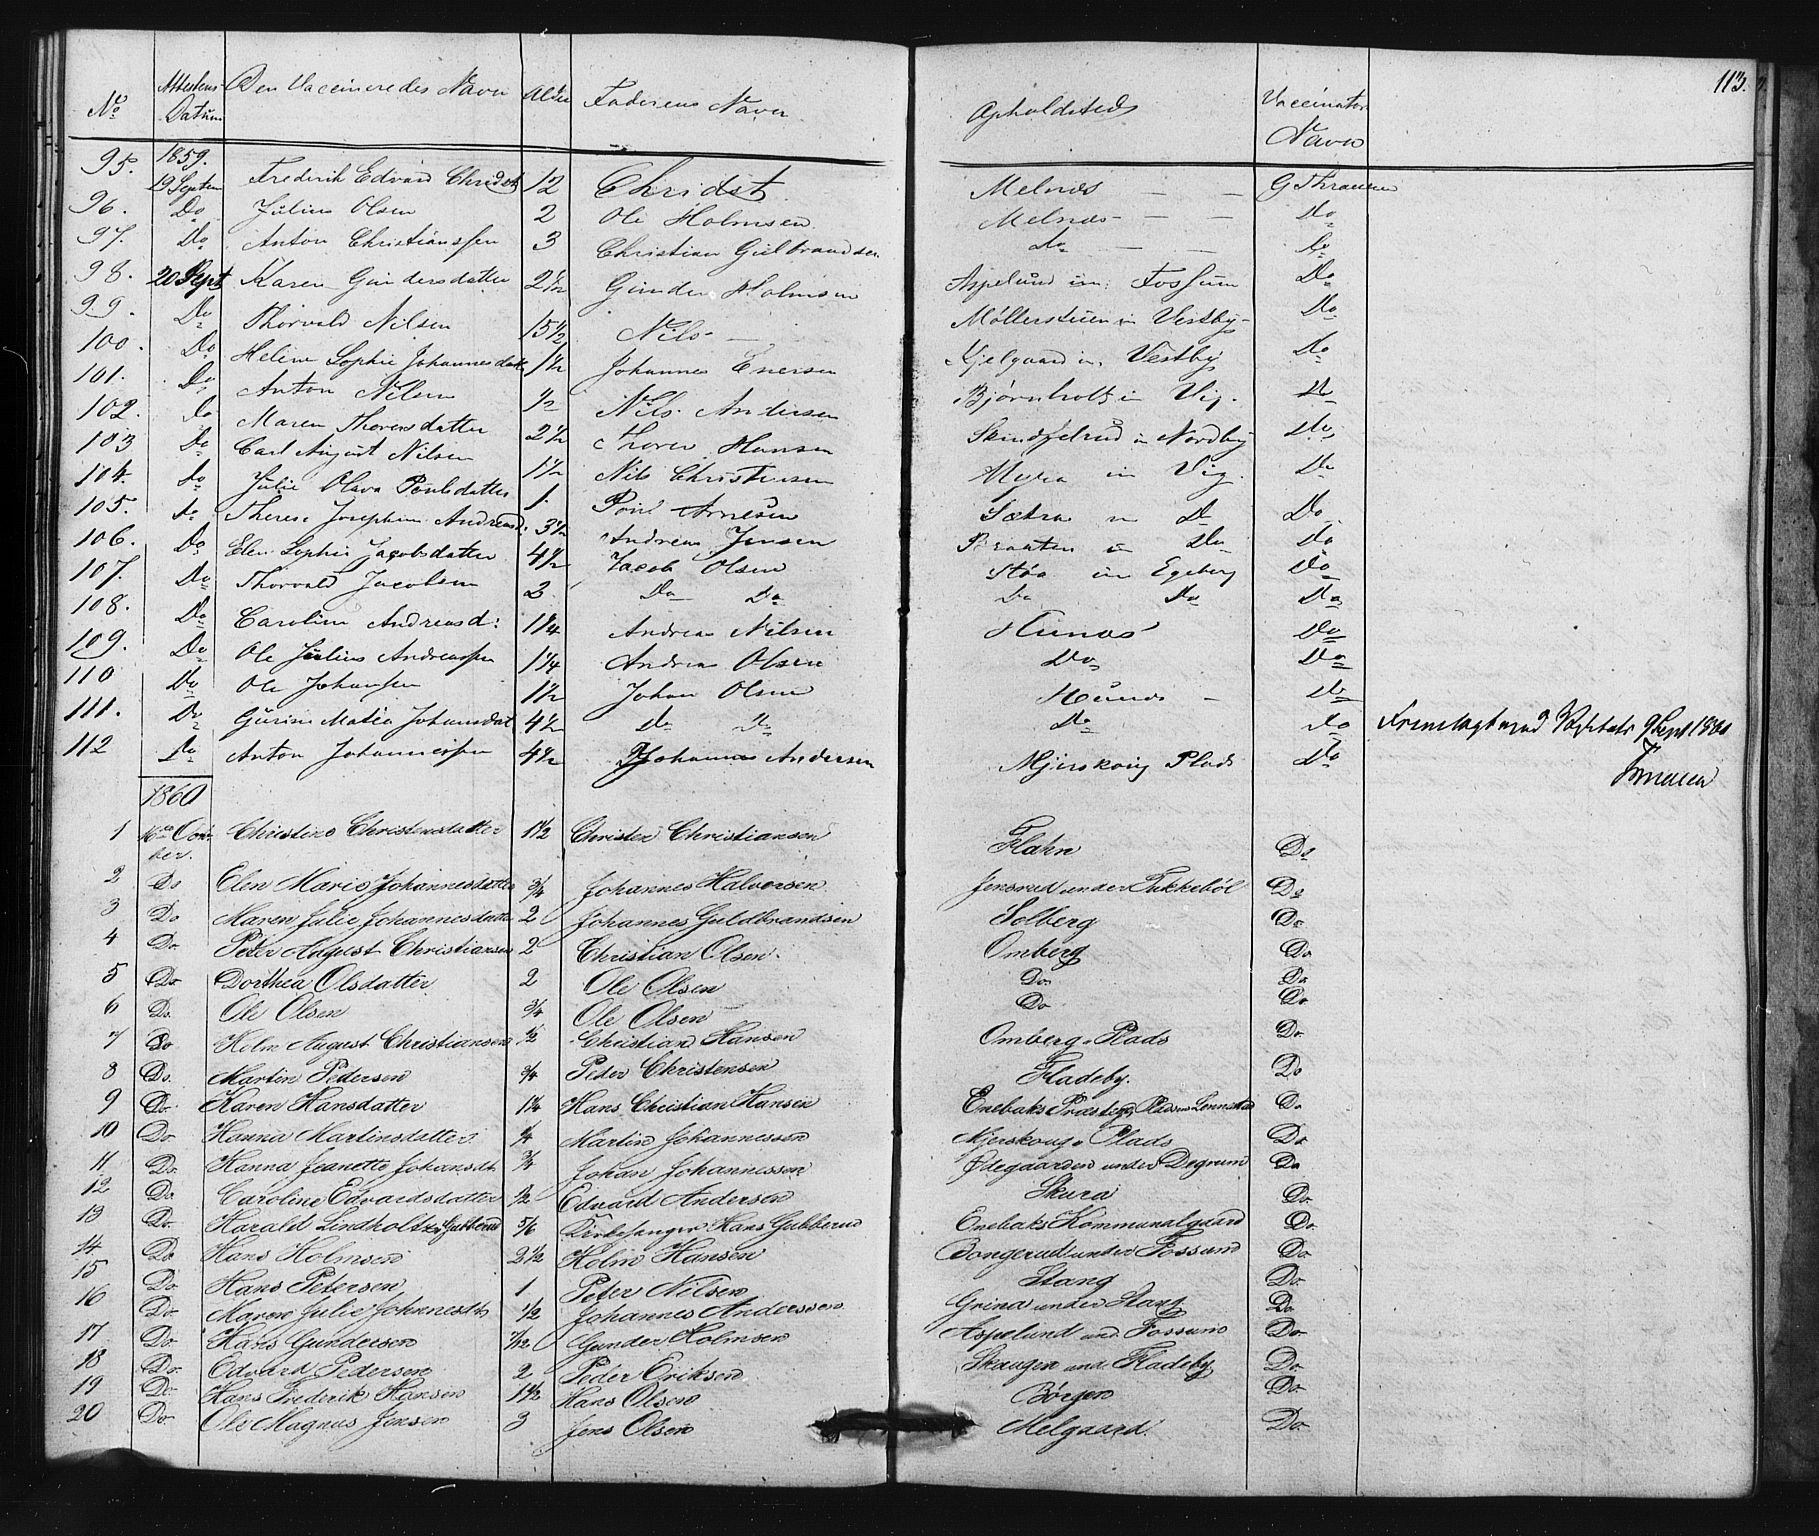 113.
No Attestens Datum Den Vaccineredes Navn Alder Faderens Navn Opholdssted Vaccinators Navn
1859.
95. 19 Septem Frederik Edvard Christ 12 Christ Melnæs — — G Thranesen
96. Do Julius Olsen 2 Ole Holmsen Melnæs — — Do
97. Do Anton Christianssen 3 Christian Gulbrandsen Do — — Do
98. 20 Sept Karen Gundersdatter 2 1/2 Gunder Holmsen Aspelund un: Fossum Do
99. Do Thorvald Nilsen 15 1/2 Nils — Møllerstuen u Vestby Do
100. Do Helene Sophie Johannesdatt 1 1/2 Johannes Enersen Kjelgaard u. Vestby Do
101. Do Anton Nilsen 1/2 Nils Andersen Bjørnholt u Vig. Do
102. Do Maren Thorersdatter 2 1/2 Thorer Hansen u Nordby Do
103 Do Carl August Nilsen 1 1/2 Nils Christensen un Vig. Do
104. Do Julie Olava Poulsdatter 1. Poul Arnesen Sætra u Do Do
105. Do Therese Josephine Andreasd: 3 1/2 Andreas Jensen Braaten u Do Do
106. Do Elen Sophie Jacobsdatter 4 1/2 Jacob Olsen Støa un Egeberg Do
107. Do Thorvald Jacobsen 2 Do Do Do Do Do
108. Do Caroline Andreasd: 1 1/4 Andreas Nilsen Hunæs Do
109. Do Ole Julius Andreassen 1 1/4 Andreas Olsen Do Do
110 Do Ole Johansen 1 1/2 Johan Olsen Hunæs — Do
111. Do Gurine Matea Johansdat 4 1/2 Do Do Do Do Fremlagt ved Visitats 9 Sept 1860
112 Do Anton Johannessen 4 1/2 Johannes Andersen Mjerskoug Plads Do
1860
1 16de October. Christine Christensdatter 1 1/2 Christen Christiansen Flahn Do
2 Do Elen Marie Johannesdatter 3/4 Johannes Halvorsen Jensrud under Tukkebøl Do
3 Do Maren Julie Johannesdatter 2 Johannes Guldbrandsen Solberg Do
4 Do Peter August Christiansen 2 Christian Olsen. Omberg Do
5 Do Dorthea Olsdatter 2 Ole Olsen Do Do
6 Do Ole Olsen 3/4 Ole Olsen Do Do
7 Do Holm August Christiansen 1/2 Christian Hansen Omberg Plads Do
8 Do. Martin Pedersen 3/4 Peder Christensen Fladeby. Do
9 Do. Karen Hansdatter 1 1/4 Hans Christian Hansen Enebaks Præsteg. Pladsen Do
10 Do Hanna Martinsdatter 1/4 Martin Johannessen Mjerskoug Plads Do
11 Do. Hanna Jeanette Johansdt 3/4 Johan Johannessen Ødegaarden under Degrum Do
12 Do Caroline Edvardsdatter 1/2 Edvard Andersen Skura Do
13 Do. Harald Lindholtz Gubberud 5/6 Kirkesanger Hans Gubberud Enebaks Kommunalgaard Do
14 Do Hans Holmsen 2 1/2 Holm Hansen Bongerud under Fossum Do
15 Do Hans Petersen 1 Peter Nilsen Stang Do
16 Do. Maren Julie Johannesdt 1/2 Johannes Andersen Grina under Stang Do
17 Do. Hans Gundersen 7/12 Gunder Holmsen Aspelund und Fossum Do
18 Do. Edvard Pedersen 2 Peder Eriksen Skaugen und Fladeby Do
19 Do. Hans Frederik Hansen 1 1/2 Hans Olsen Børgen Do
20 Do Ole Magnus Jensen 3 Jens Olsen Melgaard. Do